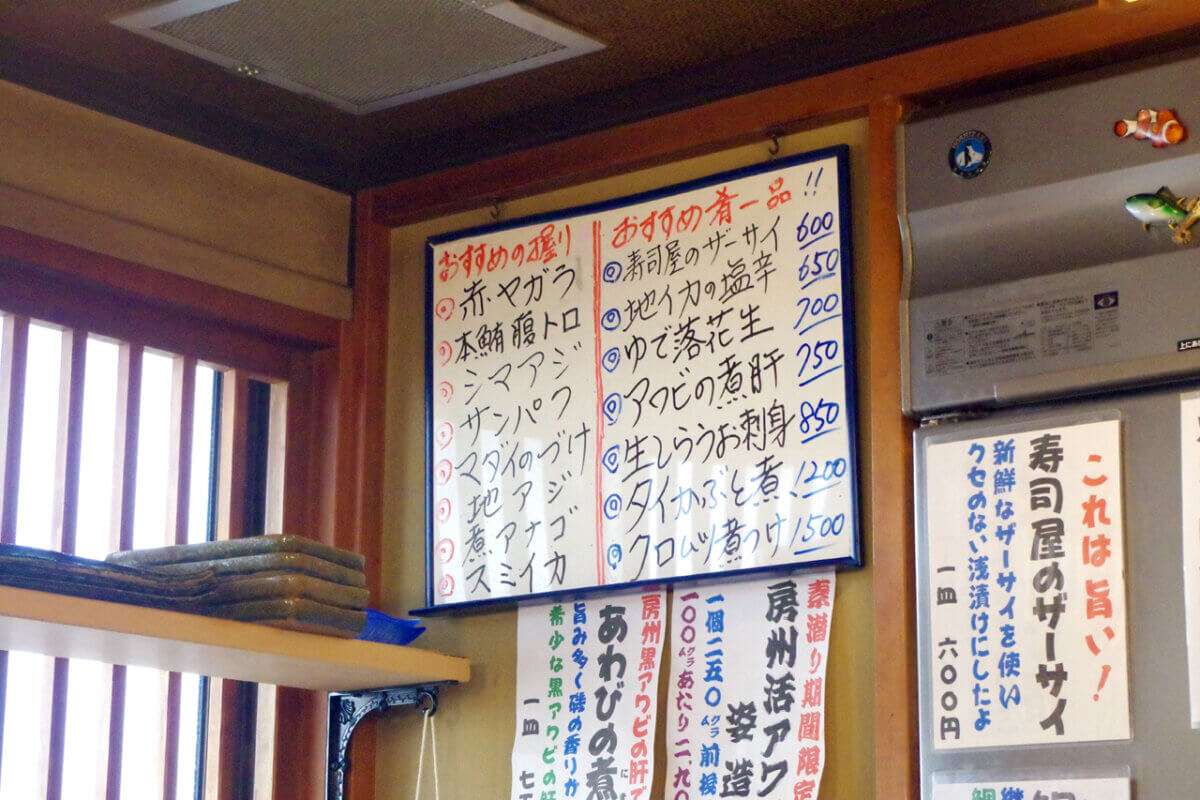 おすすめの握り
赤・ヤガラ
本鮪腹トロ
シマアジ
サンパク
マダイのづけ
地アジ
煮アナゴ
スミイカ
おすすめ肴一品!!
寿司屋のザーサイ 600
地イカの塩辛 650
ゆで落花生 700
アワビの煮肝 750
生しらうお刺身 850
タイかぶと煮 1200
クロムツ煮つけ 1500
これは旨い!
寿司屋のザーサイ
新鮮なザーサイを使い
クセのない浅漬けにしたよ
一皿 六〇〇円
素潜り期間限定
房州活アワ
姿造
一個二五〇グラム前後
一〇〇グラムあたり二、九
房州黒アワビの肝で
あわびの煮
旨み多く磯の香りか
希少な黒アワビの肝
一皿 七
上にあ